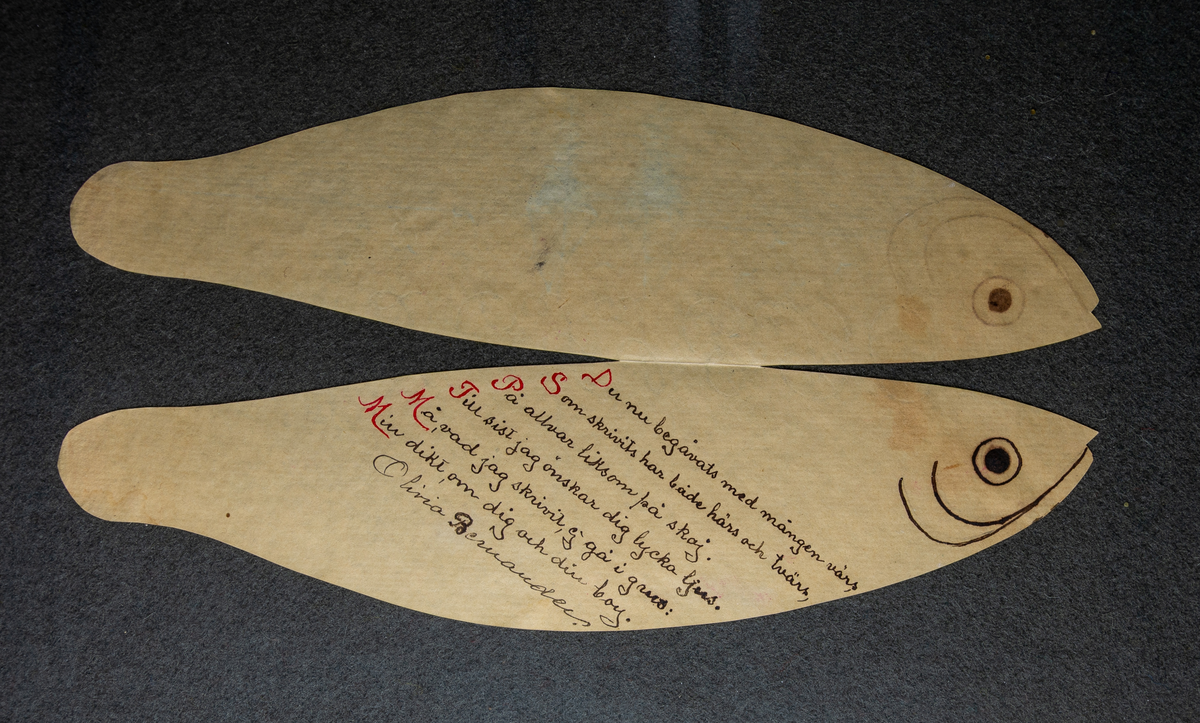 Du nu begåvats med mången värs,
Som skrivits har både härs och tvärs,
På allvar liksom på skoj.
Till sist jag önskar dig lycka ljus.
Må, vad jag skrivit, ej gå i grus:
Min dikt om dig och din boy.
Olivia Bernander.